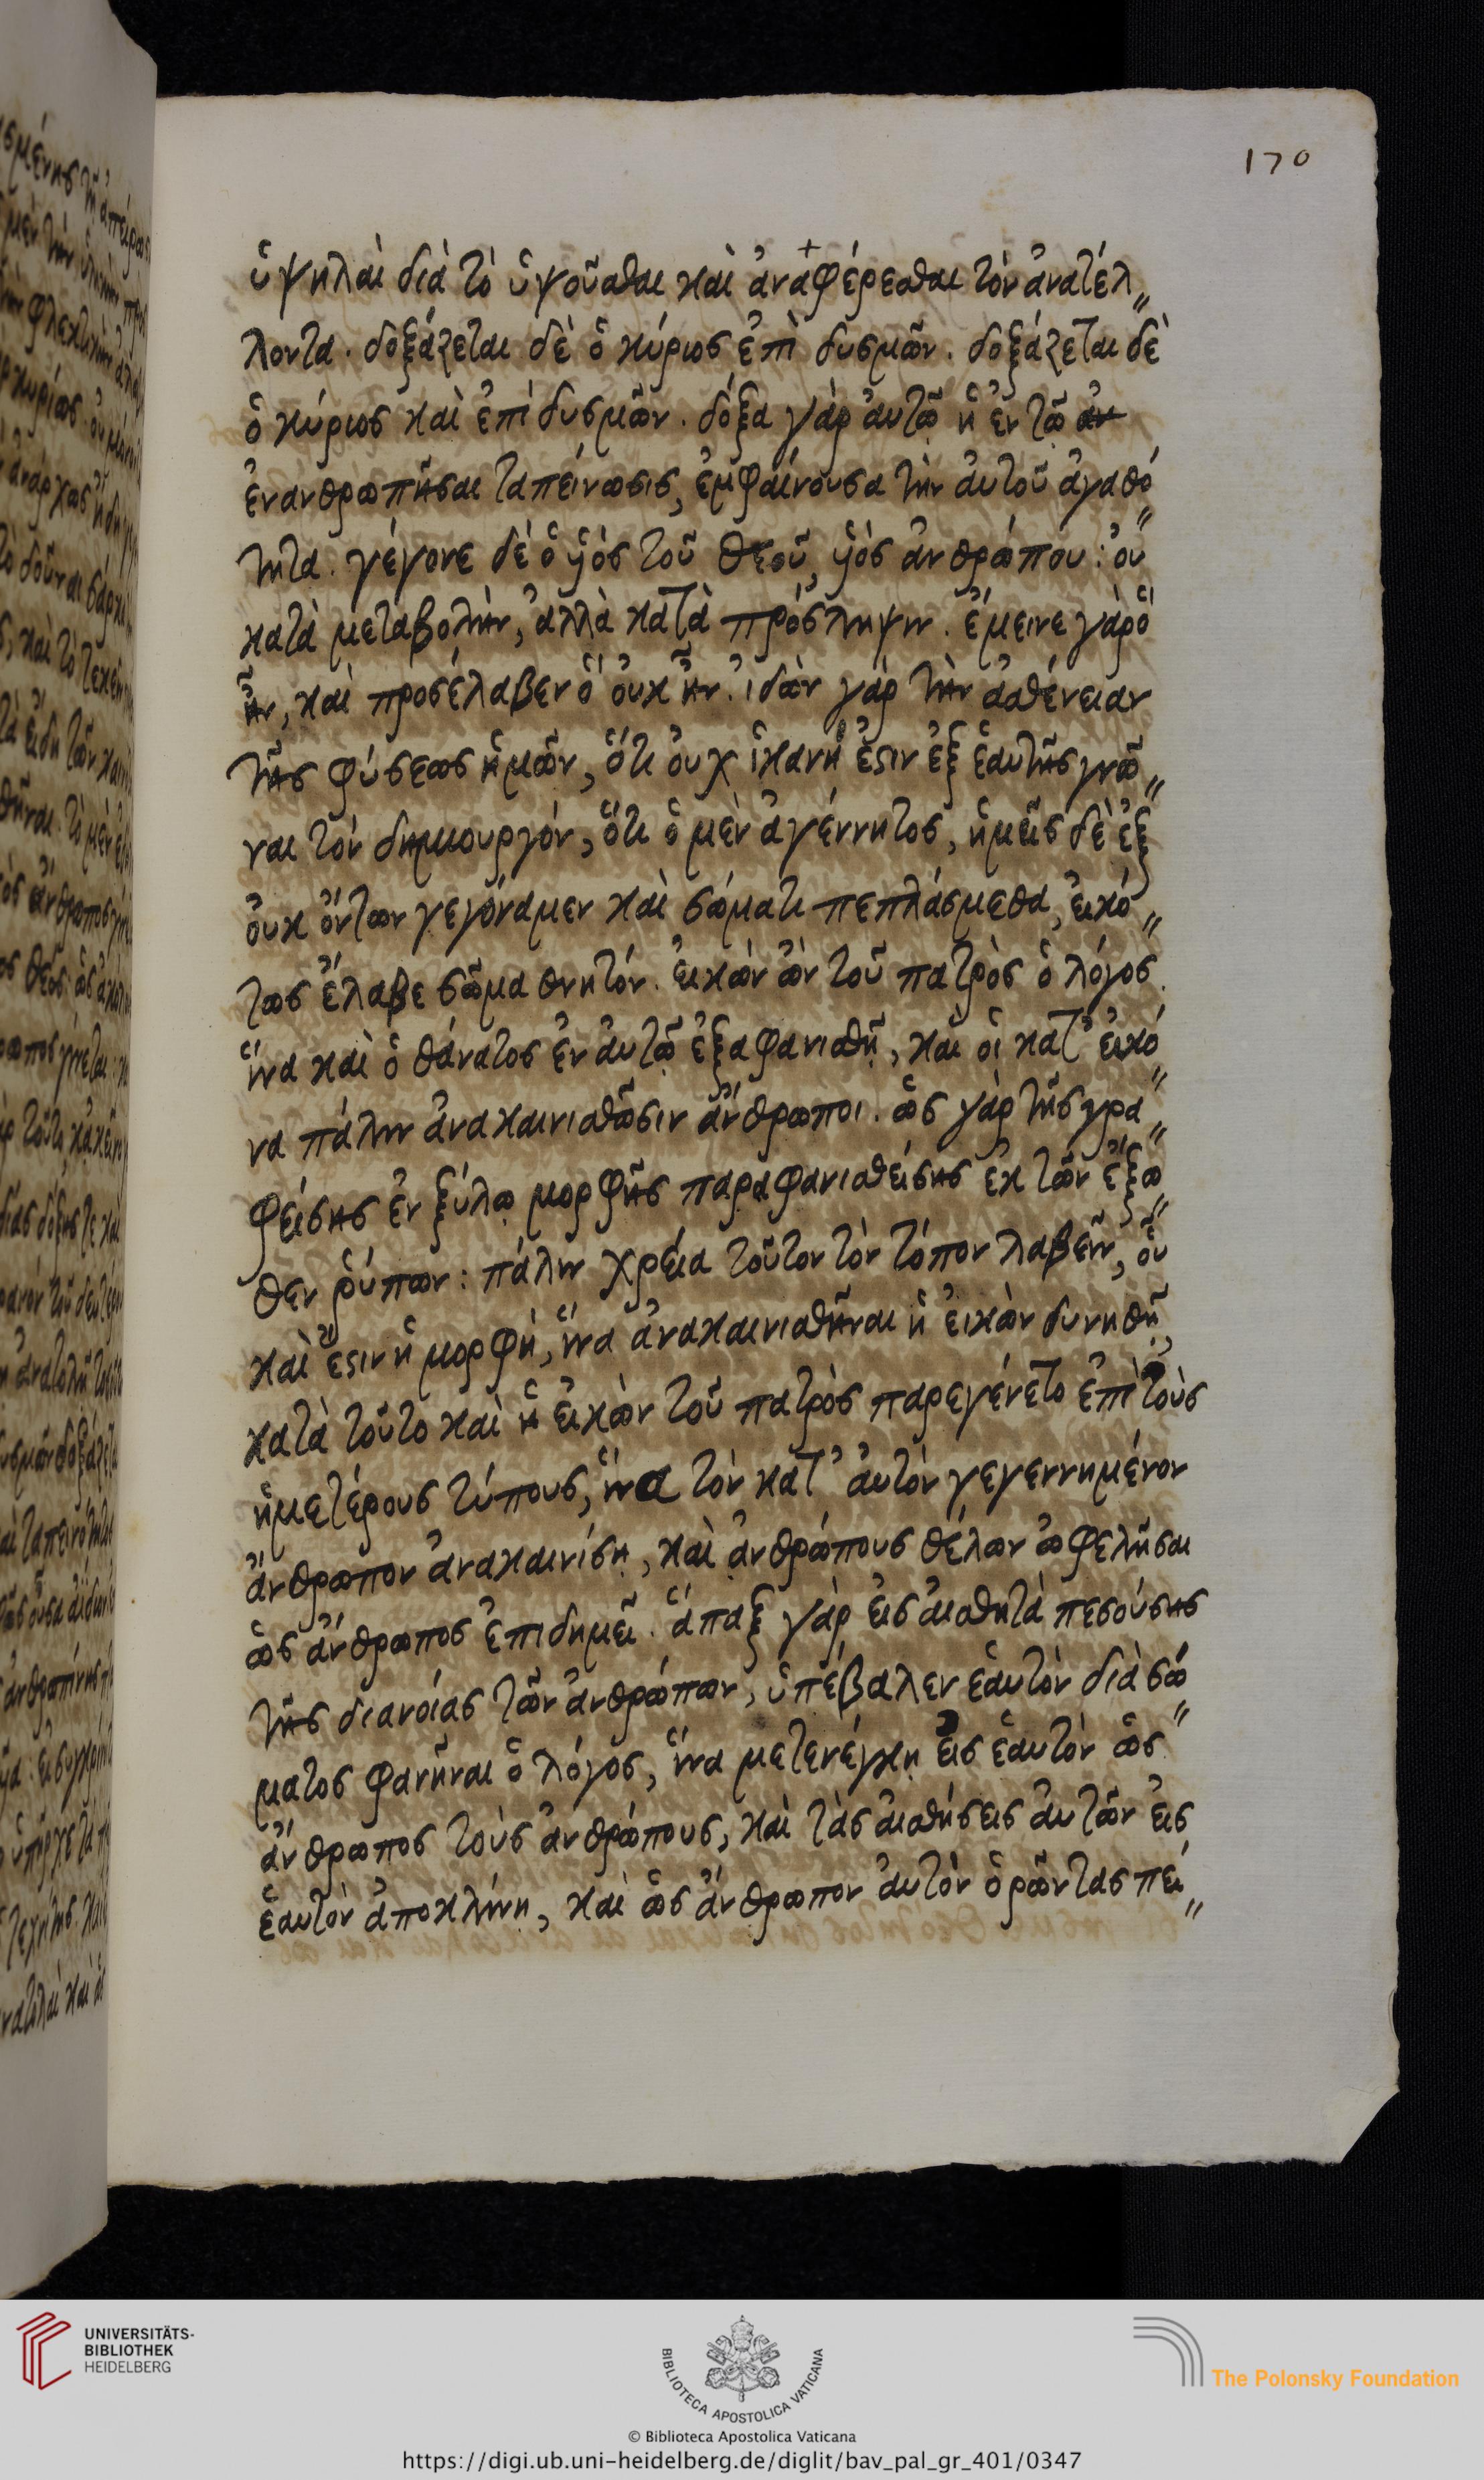 170
ὑψηλαὶ διὰ τὸ ὑψοῦσθαι καὶ ἀναφέρεσθαι τὸν ἀνατέλ〃
λοντα. δοξάζεται δὲ ὁ κύριος ἐπὶ δυσμῶν. δοξάζεται δὲ
ὁ κύριος καὶ ἐπὶ δυσμῶν. δόξα γὰρ αὐτῶ ἡ ἐν τῶ ἀν
ἐνανθρωπῆσαι ταπείνωσις, ἐμφαίνουσα τὴν αὐτοῦ ἀγαθό〃
τητα. γέγονε δὲ ὁ ὑιὸς τοῦ θεοῦ, ὑιὸς ἀνθρώπου: οὐ
κατὰ μεταβολὴν, ἀλλὰ κατὰ πρόσληψιν. ἔμεινε γὰρ ὃ
ἦν, καὶ προσέλαβεν ὃ οὐκ ἦν. ἰδὼν γὰρ τὴν ἀσθένειαν
τῆς φύσεως ἡμῶν, ὅτι οὐχ ἱκανή ἐστιν ἐξ ἑαυτῆς γνῶ〃
ναι τὸν δημιουργόν, ὅτι ὁ μὲν ἀγέννητος, ἡμεῖς δὲ ἐξ
οὐκ ὄντων γεγόναμεν καὶ σώματι πεπλάσμεθα, εἰκό〃
τως ἔλαβε σῶμα θνητόν. εἰκὼν ὢν τοῦ πατρὸς ὁ λόγος.
ἵνα καὶ ὁ θάνατος ἐν αὐτῷ ἐξαφανισθῇ, καὶ οἱ κατ' εἰκό〃
να πάλιν ἀνακαινισθῶσιν ἄνθρωποι. ὡς γὰρ τῆς γρα〃
φείσης ἐν ξύλῳ μορφῆς παραφανισθείσης ἐκ τῶν ἔξω〃
θεν ῥύπων: πάλιν χρεία τοῦτον τὸν τόπον λαβεῖν, οὗ
καὶ ἔστιν ἡ μορφὴ, ἵνα ἀνακαινισθῆναι ἡ εἰκὼν δυνηθῇ,
κατὰ τοῦτο καὶ ἡ εἰκὼν τοῦ πατρὸς παρεγένετο ἐπὶ τοὺς
ἡμετέρους τύπους, ἵνα τὸν κατ' αὐτὸν γεγεννημένον
ἄνθρωπον ἀνακαινίσῃ, καὶ ἀνθρώπους θέλων ὠφελῆσαι
ὡς ἄνθρωπος ἐπιδημεῖ. ἅπαξ γὰρ εἰς αἰσθητὰ πεσούσης
τῆς διανοίας τῶν ἀνθρώπων, ὑπέβαλεν ἑαυτὸν διὰ σώ〃
ματος φανῆναι ὁ λόγος, ἵνα μετενέγκῃ εἰς ἑαυτὸν ὡς
ἄνθρωπος τοὺς ἀνθρώπους, καὶ τὰς αἰσθήσεις αὐτῶν εἰς
ἑαυτὸν ἀποκλίνῃ, καὶ ὡς ἄνθρωπον αὐτὸν ὁρῶντας πεί〃
UNIVERSITÄTS-
BIBLIOTHEK
HEIDELBERG
BIBLIOTECA APOSTOLICA VATICANA
The Polonsky Foundation
© Biblioteca Apostolica Vaticana
https://digi.ub.uni-heidelberg.de/diglit/bav_pal_gr_401/0347